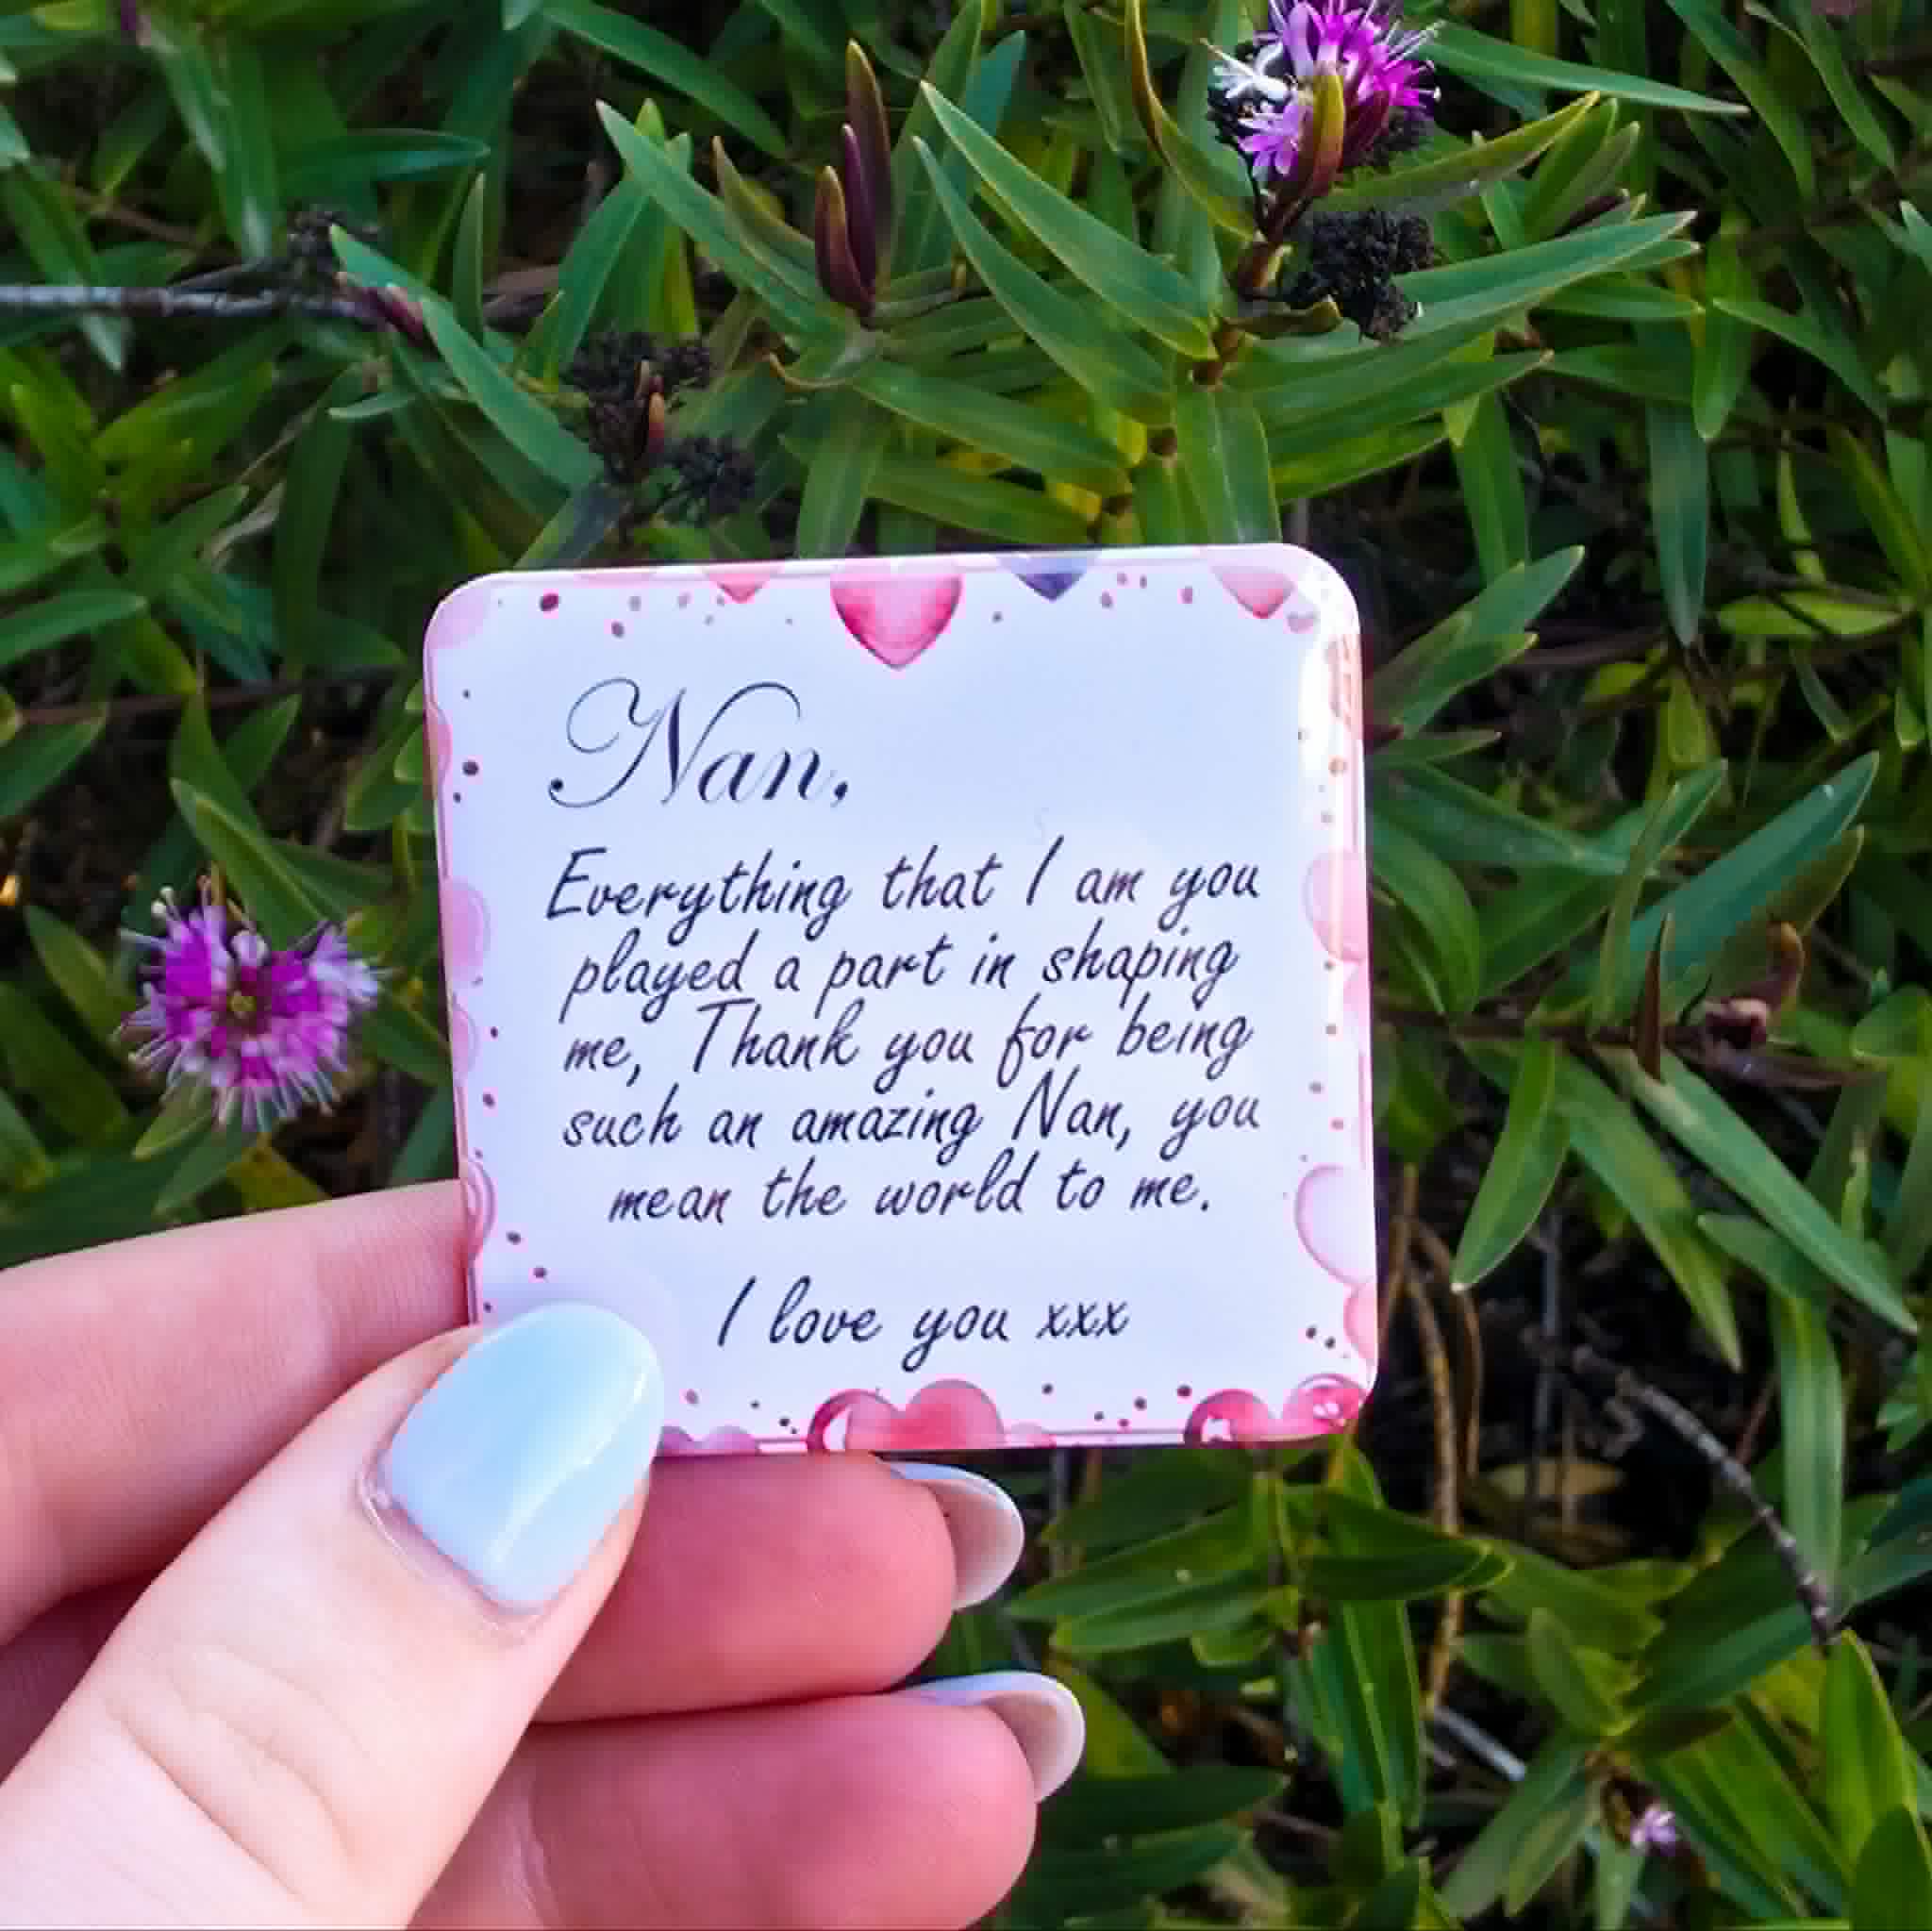 Nan,
Everything that I am you
played a part in shaping
me, Thank you for being
such an amazing Nan, you
mean the world to me.
I love you xxx